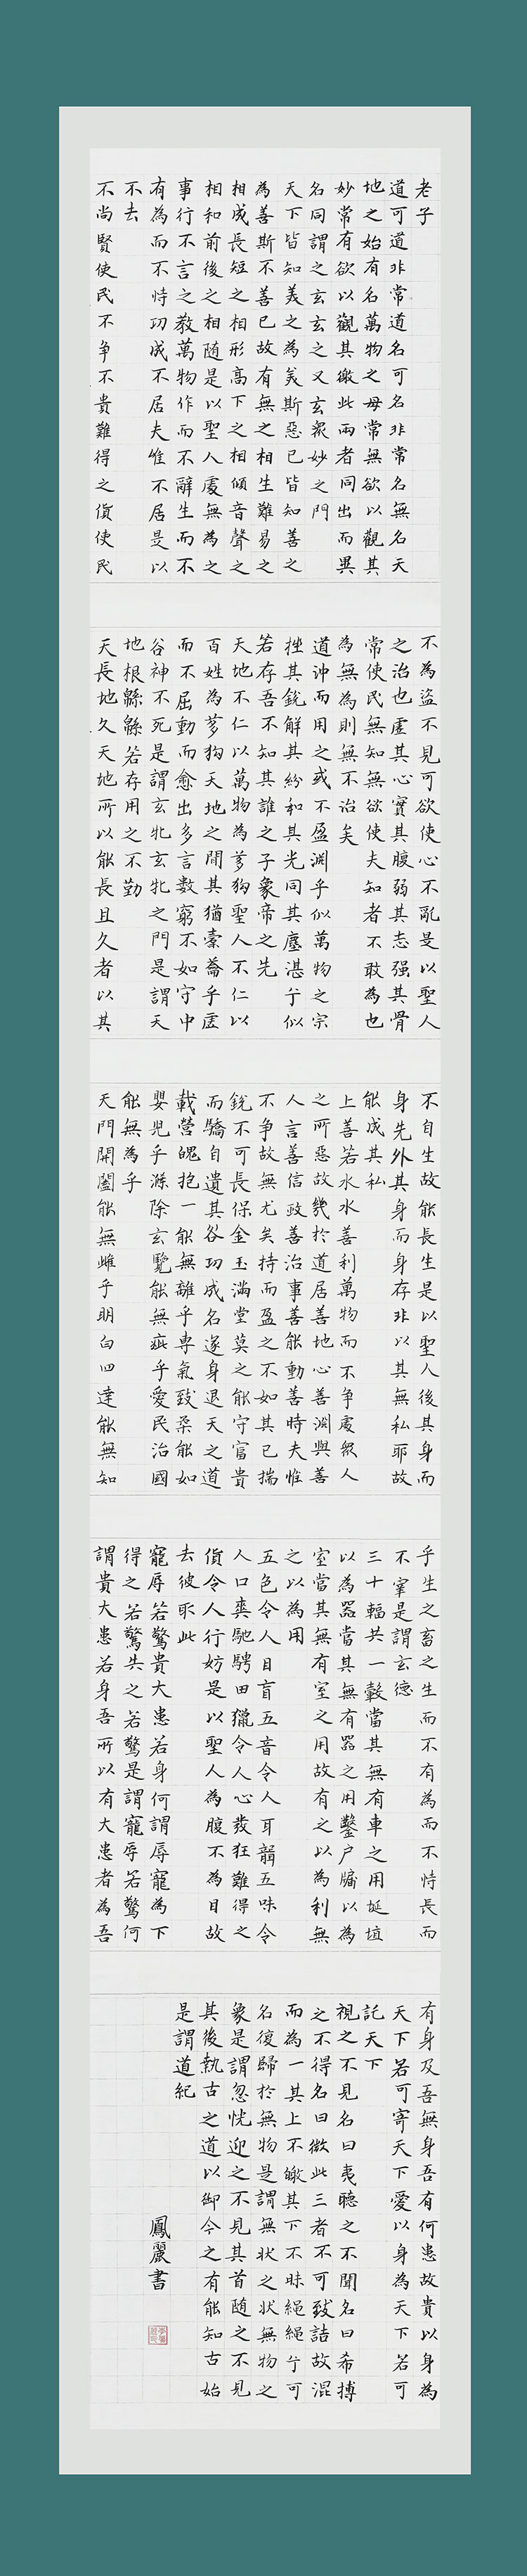 老子
道可道非常道名可名非常名無名天
地之始有名萬物之母常無欲以觀其
妙常有欲以觀其徼此兩者同出而異
名同謂之玄玄之又玄衆妙之門
天下皆知美之為美斯惡已皆知善之
為善斯不善已故有無之相生難易之
相成長短之相形高下之相傾音聲之
相和前後之相随是以聖人處無為之
事行不言之教萬物作而不辭生而不
有為而不恃功成不居夫惟不居是以
不去
不尚賢使民不争不貴難得之貨使民
不為盜不見可欲使心不亂是以聖人
之治也虛其心實其腹弱其志强其骨
常使民無知無欲使夫知者不敢為也
為無為則無不治矣
道沖而用之或不盈渊乎似萬物之宗
挫其銳解其紛和其光同其塵湛兮似
若存吾不知其誰之子象帝之先
天地不仁以萬物為芻狗聖人不仁以
百姓為芻狗天地之間其猶橐籥乎虛
而不屈動而愈出多言數窮不如守中
谷神不死是謂玄牝玄牝之門是謂天
地根緜緜若存用之不勤
天長地久天地所以能長且久者以其
不自生故能長生是以聖人後其身而
身先外其身而身存非以其無私耶故
能成其私
上善若水水善利萬物而不争處衆人
之所惡故幾於道居善地心善渊與善
人言善信政善治事善能動善時夫惟
不争故無尤矣持而盈之不如其已揣
銳不可長保金玉滿堂莫之能守富貴
而驕自遺其咎功成名遂身退天之道
載營魄抱一能無離乎専氣致柔能如
嬰兒乎滌除玄覽能無疵乎愛民治國
能無為乎
天門開闔能無雌乎明白四達能無知
乎生之畜之生而不有為而不恃長而
不宰是謂玄德
三十輻共一轂當其無有車之用埏埴
以為器當其無有器之用鑿户牖以為
室當其無有室之用故有之以為利無
之以為用
五色令人目盲五音令人耳聾五味令
人口爽馳騁田獵令人心發狂難得之
貨令人行妨是以聖人為腹不為目故
去彼取此
寵辱若驚貴大患若身何謂辱寵為下
得之若驚失之若驚是謂寵辱若驚何
謂貴大患若身吾所以有大患者為吾
有身及吾無身吾有何患故貴以身為
天下若可寄天下愛以身為天下若可
託天下
視之不見名曰夷聽之不聞名曰希摶
之不得名曰微此三者不可致詰故混
而為一其上不皦其下不昧繩繩兮可
名復歸於無物是謂無状之状無物之
象是謂忽恍迎之不見其首随之不見
其後執古之道以御今之有能知古始
是謂道紀
鳳麗書